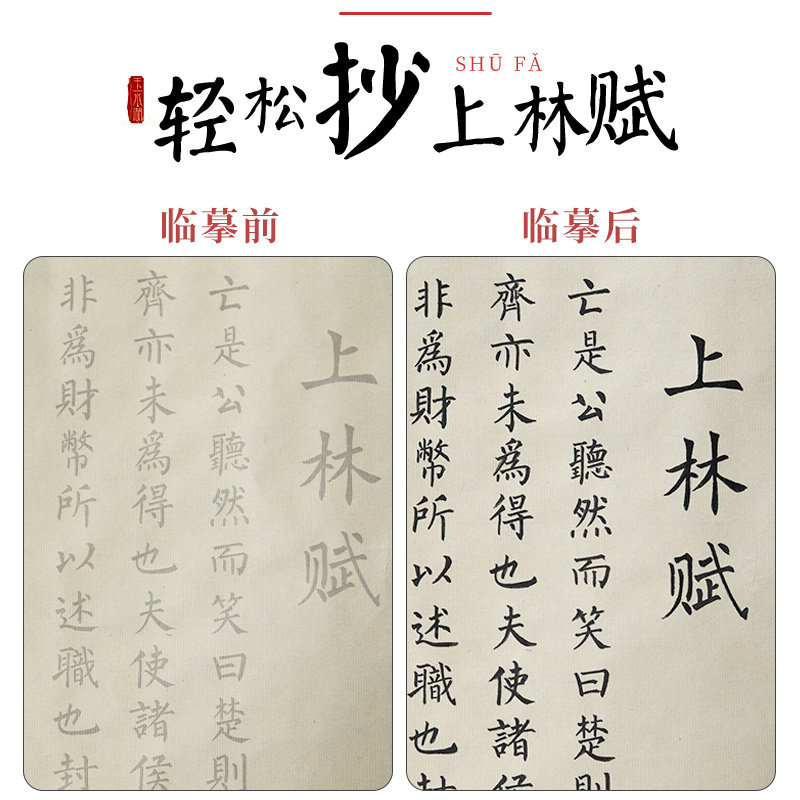 SHŪ FǍ
轻松抄上林赋
临摹前
临摹后
上林赋
亡是公聽然而笑曰楚則
齊亦未為得也夫使諸侯
非為財幣所以述職也封
上林赋
亡是公聽然而笑曰楚則
齊亦未為得也夫使諸侯
非為財幣所以述職也封